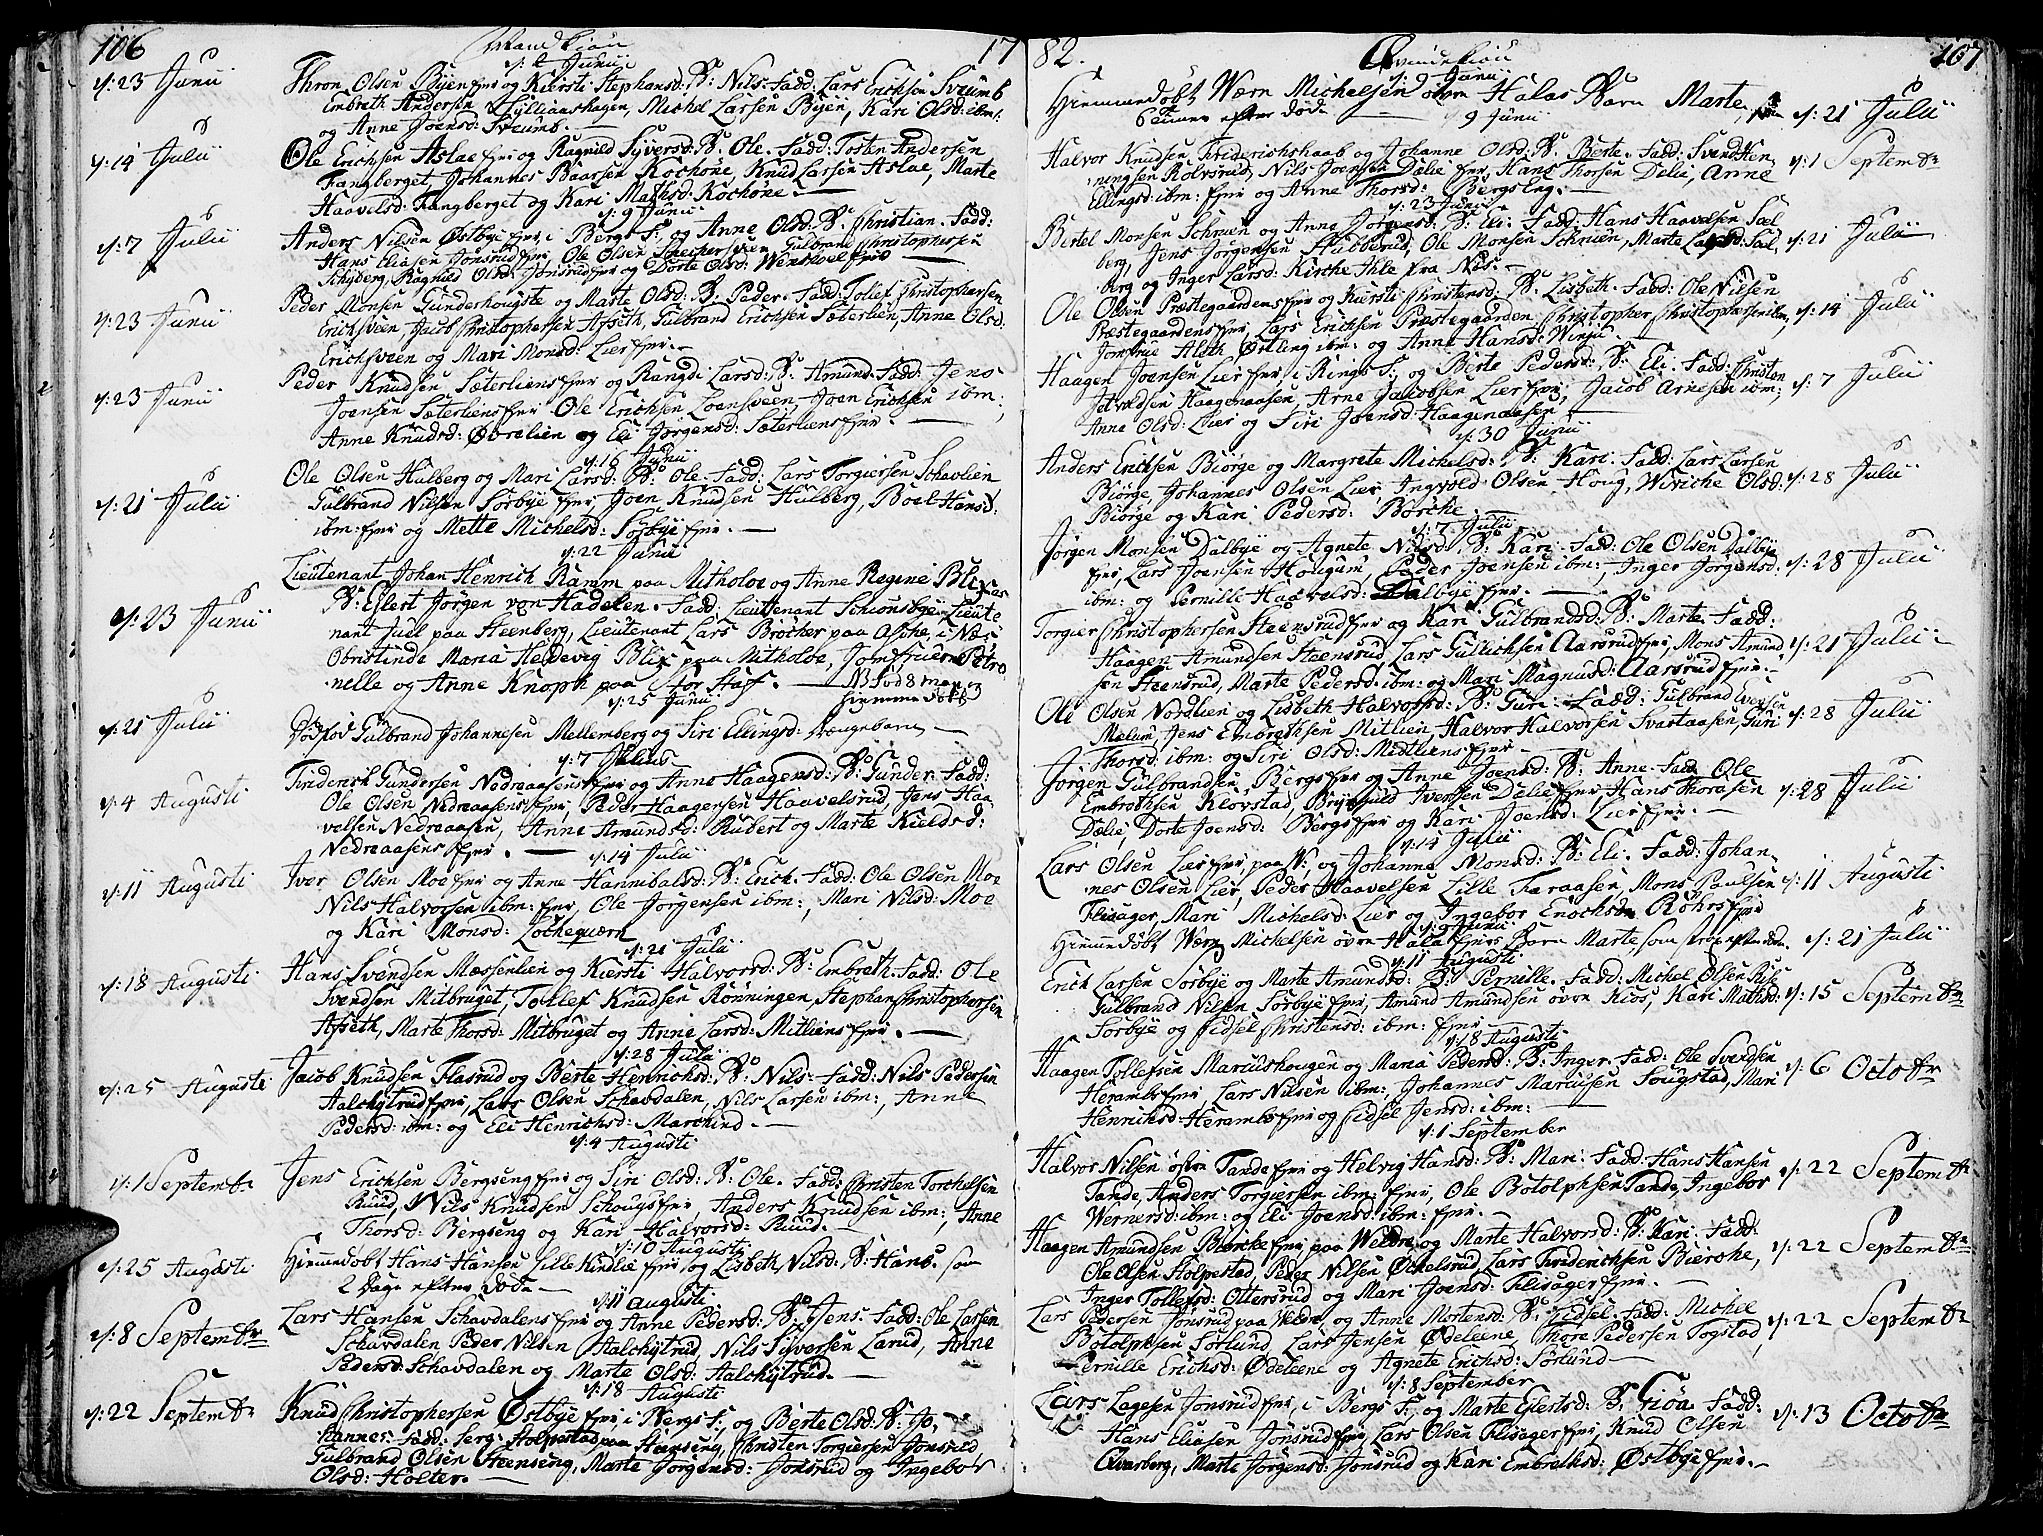 106 Mandkiön 17
d: 2 Junii
d: 23 Junii Thron Olsen Byen fmr og Kiersti Stephansd: B: Nils. Fadd: Lars Erichsen Sveumb
Embreth Andersen Lyllianshagen, Michel Larsen Byen, Kari Olsd: ibm:
og Anne Joensd: Sveumb.
d: 14 Julii Ole Erichsen Aslae fmr og Ragnild Syversd: B: Ole. Fadd: Tosten Andersen
Fangberget, Johannes Baarsen Kochöne, Knud Larsen Aslae, Marte
Haavelsd: Fangberget og Kari Mathsd: Kochöne.
d: 9 Junii
d: 7 Julii Anders Nilsen Östbye fmr i Bergs S: og Anne Olsd: B: Christian. Fadd:
Hans Eliasen Jonsrud fmr, Ole Olsen Snecker sveen, Gulbrand Christophersen
Schyberg, Ragnild Olsd: Jonsrud fmr og Dorte Olsd: Wensvel fmr
d: 23 Junii Peder Monsen Gunderhougste og Marte Olsd: B: Peder. Fadd: Tollef Christophersen
Erichsveen, Jacob Christophersen Afseth, Gulbrand Erichsen Sæterlien, Anne Olsd:
Erichsveen og Mari Monsd: Lier fmr.
d: 23 Junii Peder Knudsen Sæterliens fmr og Rangdi Larsd: B: Amund. Fadd: Jens
Joensen Sæterliens fmr Ole Erichsen Loensveen, Joen Erichsen ibm:,
Anne Knudsd: Övrelien og Eli Jorgensd: Sæterliens fmr.
d: 16 Junii
d: 21 Julii Ole Olsen Hulberg og Mari Larsd: B: Ole. Fadd: Lars Torgiersen Schavlien
Gulbrand Nilsen Sorbye fmr, Joen Knudsen Hulberg, Boel Hansd:
ibm: fmr og Mette Michelsd: Sorbye fmr.
d: 22 Junii
d: 23 Junii Lieutenant Johan Henrich Ramm paa Mitholoe og Anne Regine Blix
B: Eylert Jörgen von Hadelen. Fadd: Lieutenant Schionsbye, Lieute
nant Juel paa Steenberg, Lieutenant Lars Bröcher paa Asche, i Næs
Obristinde Maria Hedevig Blix paa Mitholoe, Jomfruerne Petro
nelle og Anne Knoph paa Stor Hof. NB Fød 8 maj
hiemme döbt
d: 25 Junii
d: 21 Julii Dödföd Gulbrand Johannesen Mellemberg og Siri Ellingsd: Drengebarn
d: 7 Julius
d: 4 Augusti Friderich Gundersen Nedraasens fmr og Anne Haagensd: B: Gunder. Fadd:
Ole Olsen Nedraasens fmr, Peder Haagensen Haavelsrud, Jens Haa-
velsen Nedraasen, Anne Amundsd: Rubert og Marte Kieldsd:
Nedraasens fmr.
d: 14 Julii
d: 11 Augusti Iver Olsen Moe fmr og Anne Hannibalsd: B: Erich. Fadd: Ole Olsen Moe
Nils Halvorsen ibm: fmr, Ole Jorgensen ibm:, Mari Nilsd: Moe
og Kari Monsd: Löchequærn
d: 21 Julii
d: 18 Augusti Hans Svendsen Mæssenlien og Kiersti Halvorsd: B: Embreth. Fadd: Ole
Svendsen Mitbruget, Tollef Knudsen Rönningen, Stephan Christophersen
Afseth, Marte Thorsd: Mitbruget og Anne Larsd: Mitliens fmr.
d: 28 Julii
d: 25 Augusti Jacob Knudsen Flasrud og Berte Henrichsd: B: Nils. Fadd: Nils Pedersen
Aalchytrud fmr, Lars Olsen Schavdalen, Nils Larsen ibm:, Anne
Pedersd: ibm: og Eli Henrichsd: Marchind.
d: 4 Augusti
d: 1 Septembr Jens Erichsen Bergseng fmr og Siri Olsd: B: Ole. Fadd: Christen Torchelsen
Ruud, Nils Knudsen Schougs fmr, Anders Knudsen ibm:, Anne
Thorsd: Bergseng og Kari Halvorsd: Ruud.
d: 10 Augusti
d: 25 Augusti Hiemmedobt Hans Hansen Lille Kindlie fmr og Lisbeth Nilsd: B: Hans. som
2 Dage efter döde
d: 11 Augusti
d: 8 Septembr Lars Hansen Schavdalens fmr og Anne Pedersd: B: Jens. Fadd: Ole Larsen
Schavdalen, Peder Nilsen Aalchytrud, Nils Syversen Larud, Anne
Pedersd: Schavdalen og Marte Olsd: Aalchytrud.
d: 18 Augusti
d: 22 Septembr Knud Christophersen Östbye fmr i Bergs S: og Berte Olsd: B: Jo-
hannes. Fadd: Serg: Holpestad paa Steenseng, Christen Torgiersen Jonsrud,
Gulbrand Olsen Steenseng, Marte Jorgensd: Jonsrud og Ingebor
Olsd: Holter.
82. Qvindekiön 107
d: 9 Junii
Hiemmedöbt Wærn Michelsen övre Halas Barn Marte, d: 21 Julii
6 timer efter döde
d: 9 Junii
Halvor Knudsen Friderichshaab og Johanne Olsd: B: Berte. Fadd: Svend Hen- d: 1 Septembr
ningsen Rolvsrud, Nils Joensen Dælie fmr, Hans Thorsen Dælie, Anne
Ellingsd: ibm: fmr og Anne Thorsd: Bergseng.
d: 23 Junii
Bertel Monsen Schruen og Anna Jörgensd: B: Eli. Fadd: Hans Haavelsen Sæl d: 21 Julii
berg, Jens Jorgensen Stubberud, Ole Monsen Schruen, Marte Larsd: Sæl,
berg og Inger Larsd: Kirche Ihle fra Nes.
Ole Olsen Præstegaardens fmr og Kiersti Christensd: B: Lisbeth. Fadd: Ole Nilsen d: 14 Julii
Præstegaardens fmr, Lars Erichsen Præstegaarden, Christopher Christophersen ibm:,
Jomfrue Aleth Örtling ibm: og Anne Hansd: Winju.
Haagen Joensen Lier fmr, i Rings S: og Berte Pedersd: B: Eli. Fadd: Christen d: 7 Julii
Haagenaasen, Arne Jacobsen Lier fmr, Jacob Arnesen ibm:
Anne Olsd: Lier og Siri Joensd: Haagenaasen
d: 30 Junii
Anders Erichsen Biörge og Margrete Michelsd: B: Kari. Fadd: Lars Larsen d: 28 Julii
Biörge, Johannes Olsen Lier, Ingvold Olsen Houg, Wiviche Olsd:
Biörge og Kari Pedersd: Börche.
d: 7 Julii
Jörgen Monsen Dalbye og Agnete Nilsd: B: Kari. Fadd: Ole Olsen Dalbye d: 28 Julii
fmr, Lars Joensen Hougum, Peder Joensen ibm:, Inger Jorgensd:
ibm: og Pernille Haavelsd: Dalbye fmr.
Torgier Christophersen Steensrud fmr og Kari Gulbrandsd: B: Marte. Fadd: d: 21 Julii
Haagen Amundsen Steensrud, Lars Gullichsen Aarsrud fmr, Mons Amund
sen Steensrud, Marte Pedersd: ibm: og Mari Magnusd: Aarsrud fmr.
Ole Olsen Nordlien og Lisbeth Halvorsd: B: Guri. Fadd: Gulbrand Iversen d: 28 Julii
Mælum, Jens Embrethsen Mitlien, Halvor Halvorsen Svartaasen, Guri
Thorsd: ibm: og Siri Olsd: Midtliens fmr
Jörgen Gulbrandsen Bergs fmr og Anne Joensd: B: Anne. Fadd: Ole d: 28 Julii
Embrethsen Klovstad, Brynild Iversen Dælie fmr, Hans Thorsen
Dælie, Dorte Joensd: Bergs fmr og Kari Joensd: Lier fmr.
d: 14 Julii
Lars Olsen Lier fmr, paa W: og Johanna Monsd: B: Eli. Fadd: Johan- d: 11 Augusti
nes Olsen Lier, Peder Haavelsen Lille Faraasen, Mons Paulsen
Flisager, Mari Michelsd: Lier og Ingebor Enochsdr Röhrs fmr
d: 9 Junii
Hiemmedöbt Wærn Michelsen övre Hala fmrs Barn Marte, som strax efter döde. d: 21 Julii
d: 11 Augusti
Erich Larsen Sorbye og Marte Amundsd: B: Pernille. Fadd: Michel Olsen Riis d: 15 Septembr
Gulbrand Nilsen Sorbye fmr, Amund Amundsen övre Kios, Kari Mathsd:
Sorbye og Sidsel Christensd: ibm: fmr
d: 18 Augusti
Haagen Tollefsen Marcushougen og Maria Pedersd: B: Inger. Fadd: Ole Svendsen d: 6 Octobr
Herambs fmr, Lars Nilsen ibm:, Johannes Marcusen Sougstad, Mari
Henrichsd: Herambs fmr og Sidsel Jensd: ibm:
d: 1 September
Halvor Nilsen östre Tande fmr og Helvig Hansd: B: Mari. Fadd: Hans Hansen d: 22 Septembr
Tande, Anders Torgiersen ibm: fmr, Ole Botolphsen Tande, Ingebor
Wernersd: ibm: og Eli Joensd: ibm: fmr.
Haagen Amundsen Bierche fmr paa Weldre og Marte Halvorsd: B: Kari. Fadd: d: 22 Septembr
Ole Olsen Stolpestad, Peder Nilsen Öchelsrud, Lars Friderichsen Bierche,
Inger Tollefsd: Ottersrud og Mari Joensd: Flisager fmr.
Lars Pedersen Jonsrud paa Weldre, og Anne Mortensd: B: Sidsel. Fadd: Michel d: 22 Septembr
Botolphsen Sorlund, Lars Jensen Ödeleene, Thore Pedersen Fogstad,
Pernille Erichsd: Ödeleene og Agnete Erichsd: Sörlund
d: 8 September
Lars Lagesen Jonsrud fmr, i Bergs S: og Marte Eiertsd: B: Giöa. Fadd: d: 13 Octobr
Hans Eliasen Jonsrud fmr, Lars Olsen Flisager fmr, Knud Olsen
Qvarberg, Marte Jorgensd: Jonsrud og Kari Embrethsd: Östbye fmr.